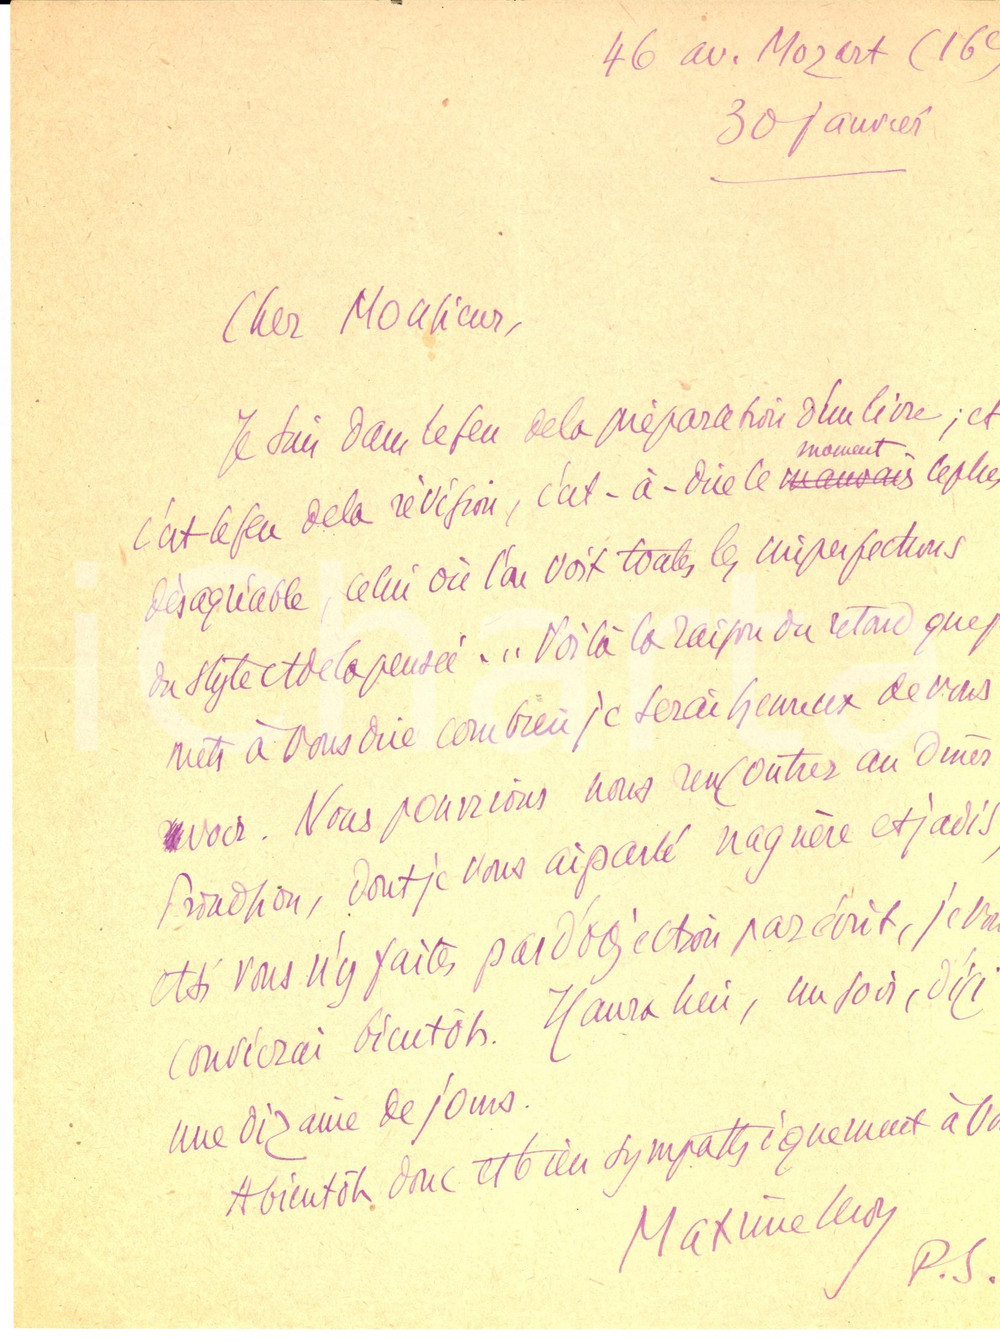 46 av. Mozart (16e
30 janvier
Cher Monsieur,
Je suis dans le feu de la préparation d'un livre ; et
moment
c'est le feu de la révision, c'est-à-dire le mauvais le plus
désagréable, celui où l'on voit toutes les imperfections
du style et de la pensée... Voilà la raison du retard que j
mets à vous dire combien je serai heureux de vous
avoir. Nous pourrions nous rencontrer au Dîner
Proudhon, dont je vous ai parlé naguère et jadis,
et si vous n'y faites pas d'objection par écrit, je vou
convierai bientôt. Il aura lieu, un soir, d'ici
une dizaine de jours.
A bientôt donc et bien sympathiquement à vo
Maxime Leroy
P.S.
iCharta